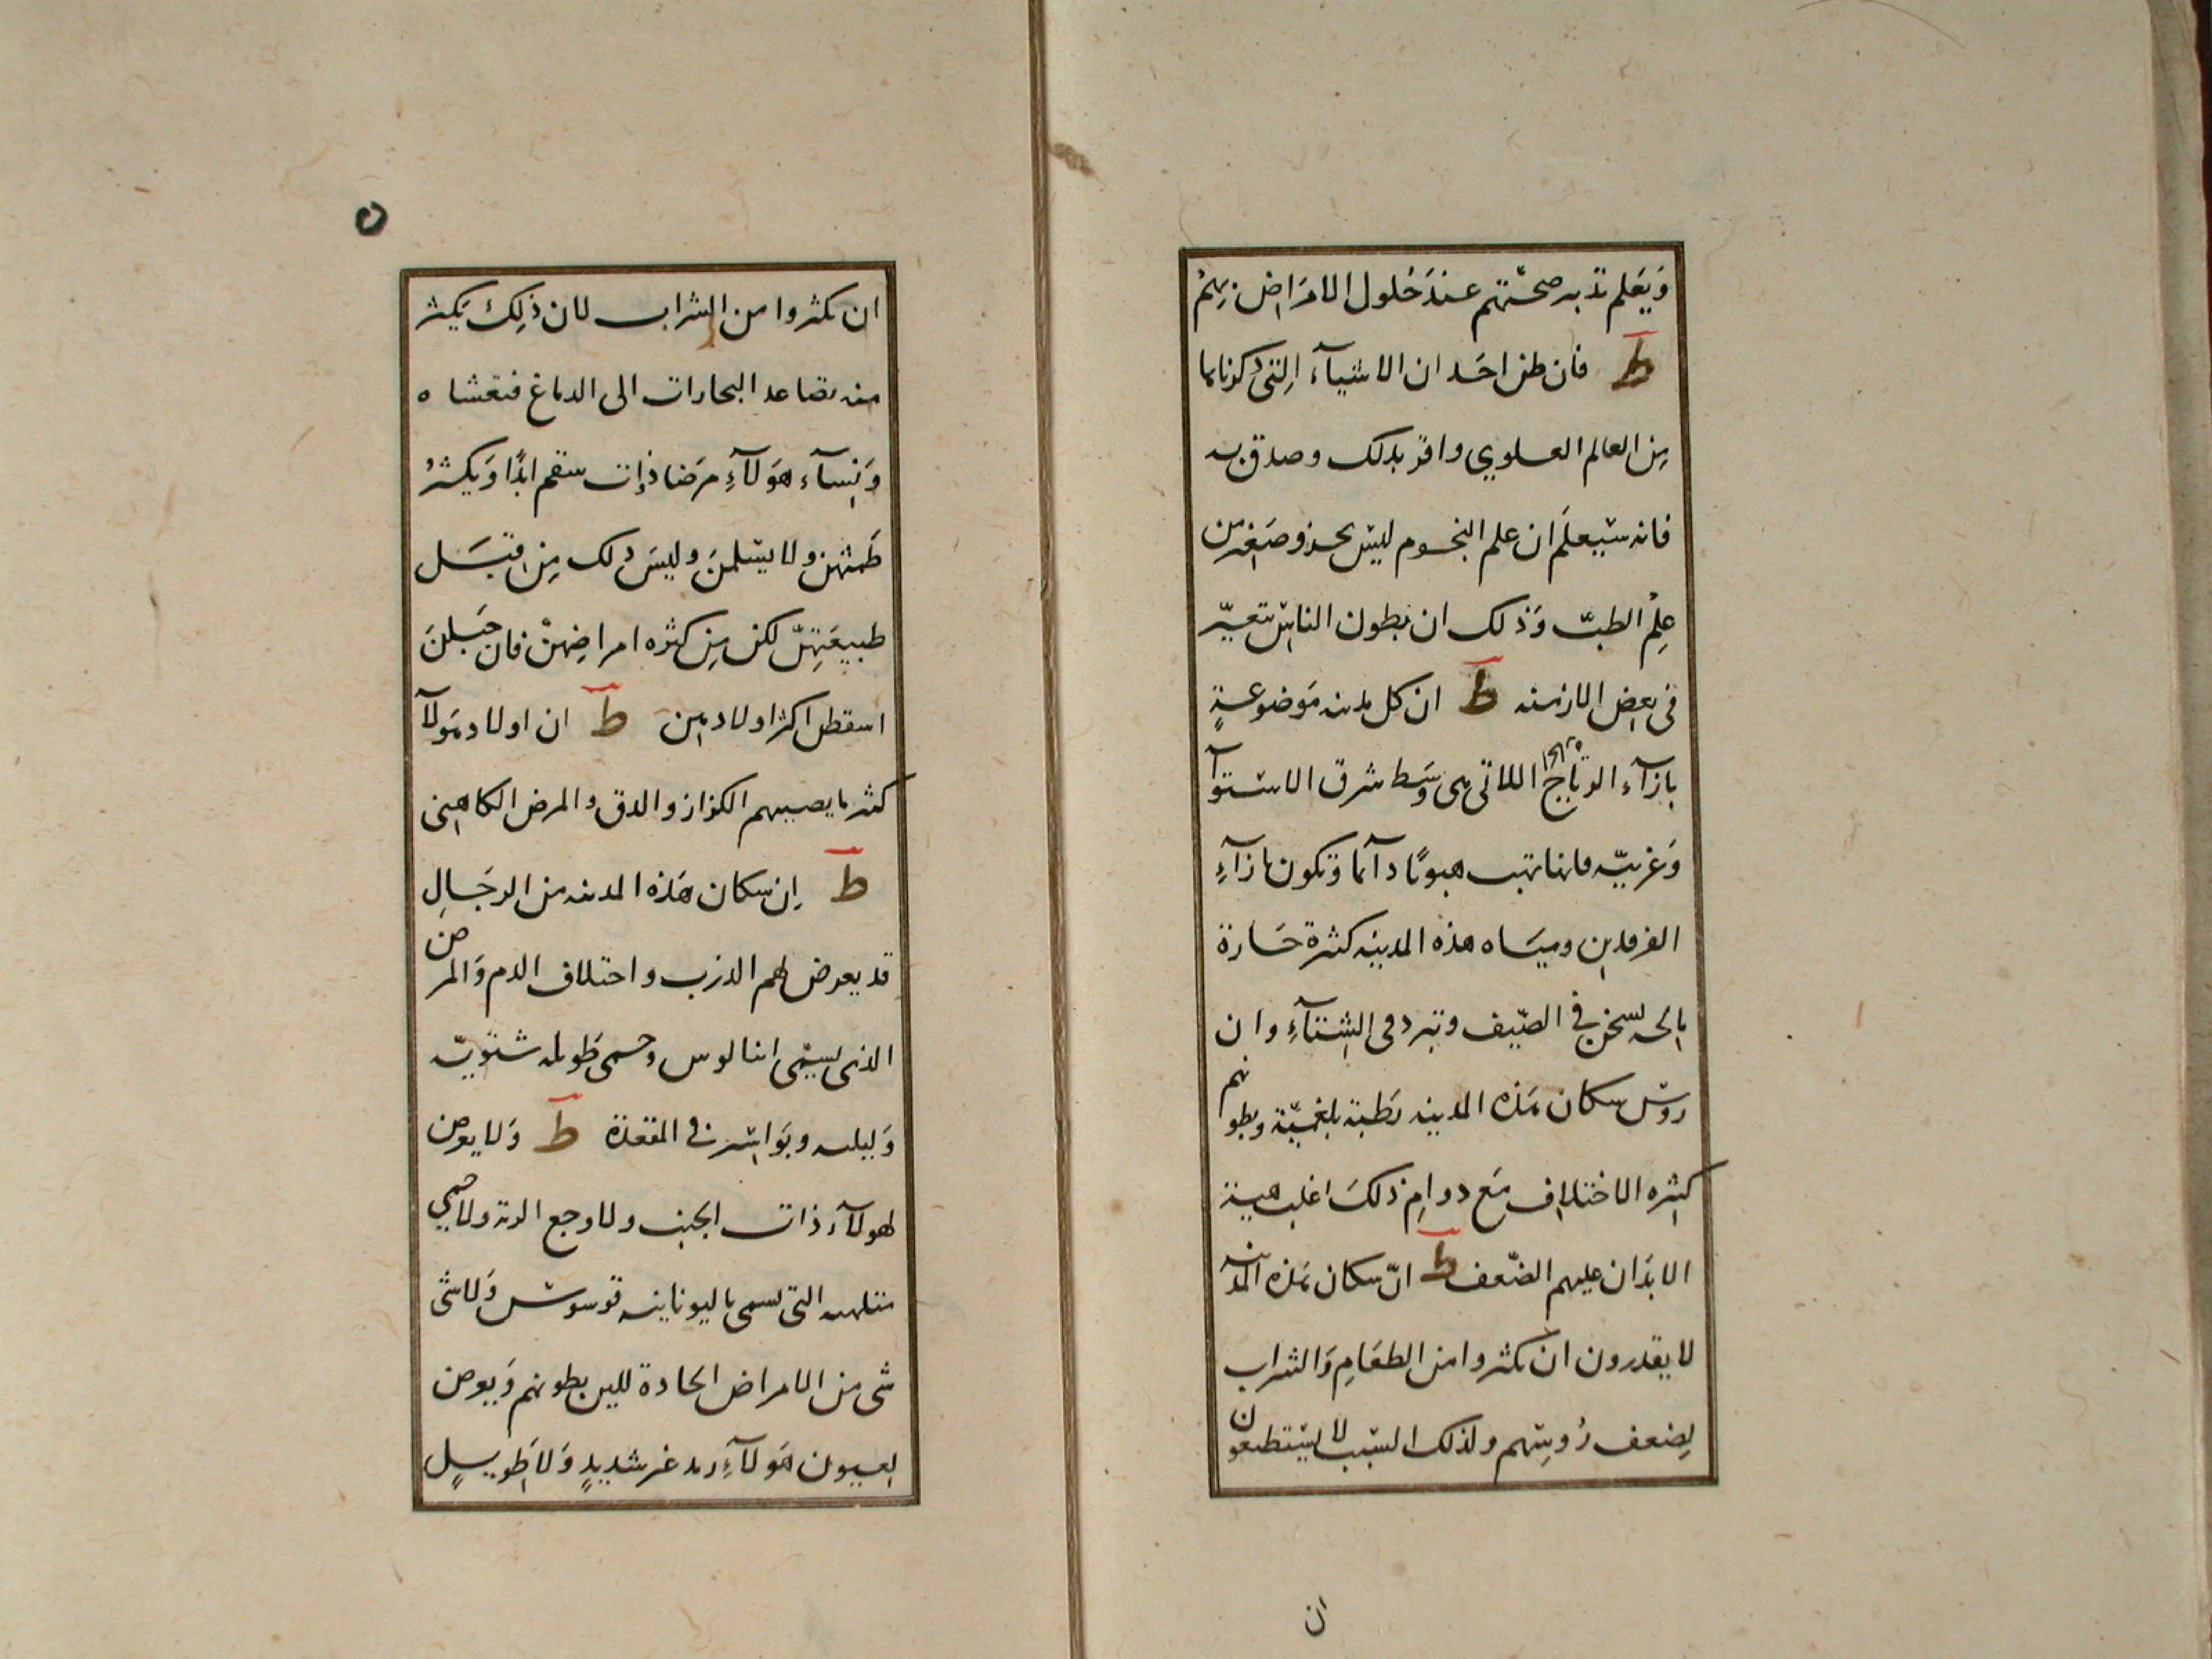 وَيَعلم تدبير صحتهم عند حُلول الامَراض بهِمُ
ط فان ظن احَد ان الاشيآء التى ذكرناها
مِن العالم العلوي واقر بذلك وصدق به
فانه سَيعلَم ان علم النجوم ليسَ بجزو صَغير من
عِلْم الطبّ وَذلك ان بطون الناس تتغيّر
فى بعض الازمنه ط ان كل مدينه مَوضوعةٍ
بازآء الرياح الحارة اللاتى هى وَسَط شرق الاستوآ
وَغربيّه فانها تهب هبوبًا دآئما وتكون بازآءِ
الفرقدين وميَاه هذه المدينه كثيرة حَارة
مالحه تسخن في الصّيف وتبرد فى الشتآءِ وان
روسَ سكان هَذه المدينه رَطبة بلغميّة وبطونهم
كثيره الاختلاف مَع دوامِ ذلكَ اغلب هيئة
الابدَان عليهم الضّعف ط انّ سكان هَذه المدينه
لا يقدرون ان يكثروا من الطعَامِ وَالشراب
لِضعف رُوسِهم ولذلك السّبب لا يَستطيعون
ان
ان يكثروا من الشراب لان ذلِكَ يَكثر
منه تصاعد البخارات الى الدماغ فتغشاه
وَنِسآء هَولآءِ مرَضا ذات سقم ابدًا وَيكثرُ
طَمثهن ولا يسَلمنَ وليسَ ذلك مِن قبَل
طبيعَتِهنّ لكن مِن كثره امراضِهنْ فان حَبلنَ
اسقطن اكثر اولادهن ط ان اولاد هَولآ
كثير ما يصيبهم الكزاز والدق والمرض الكاهنى
ط اِن سكان هَذه المدينه من الرجَالِ
قد يعرض لهم الذرب واختلاف الدم وَالمرض
الذى يسمّى انيالوس وحمى طَويله شتَويّه
وَليليه وبَواسير فى المقعَدة ط وَلا يعرض
لهولآء ذات الجنب ولا وجع الريه ولا حمى
ملتهبه التى تسمى باليونانيه قوسوس وَلا شى
شى من الامراض الحَادة للين بطونهم وَيعرض
لعيون هَولآءِ رمد غير شديدٍ وَلا طَويلٍ